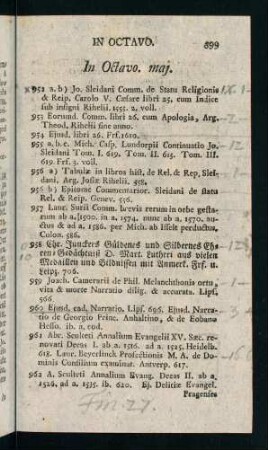 IN OCTAVO. 899
In Octavo. maj.
952 a. b) Jo. Sleidani Comm. de Statu Religionis
& Reip. Carolo V. Cæsare libri 25. cum Indice
sub insigni Rihelii. 1555. 2. voll.
953 Eorumd. Comm. libri 26. cum Apologia, Arg.
Theod. Rihelii sine anno.
954 Ejusd. libri 26. Frf. 1610.
955 a. b. c. Mich. Casp. Lundorpii Continuatio Jo.
Sleidani Tom. I. 619. Tom. II. 615. Tom. III.
619. Frf. 3. voll.
956 a) Tabulæ in libros hist. de Rel. & Rep. Slei-
dani. Arg. Josiæ Rihelii. 558.
956 b) Epitome Commentarior. Sleidani de statu
Rel. & Reip. Genev. 556.
957 Laur. Surii Comm. brevis rerum in orbe gesta-
rum ab a. 1500. in a. 1574. nunc ab a. 1570. au-
ctus & ad a. 1586. per Mich. ab Isselt perductus.
Colon. 586.
958 Chr. Junckers Güldenes und Silbernes Eh-
ren-Gedächtniß D. Mart. Lutheri aus vielen
Medaillen und Bildnissen mit Anmerk. Frf. u.
Leipz. 706.
959 Joach. Camerarii de Phil. Melanchthonis ortu,
vita & morte Narratio dilig. & accurata. Lips.
566.
960 Ejusd. ead. Narratio. Lips. 696. Ejusd. Narra-
tio de Georgio Princ. Anhaltino, & de Eobano
Hesso. ib. e. eod.
961 Abr. Sculteti Annalium Evangelii XV. Sæc. re-
novari Decas I. ab a. 1516. ad a. 1525. Heidelb.
618. Laur. Beyerlinck Profectionis M. A. de Do-
minis Consilium examinat. Antverp. 617.
962 A. Sculteti Annalium Evang. Decas II. ab a.
1526. ad a. 1535. ib. 620. Ej. Delitiæ Evangel.
Pragenses